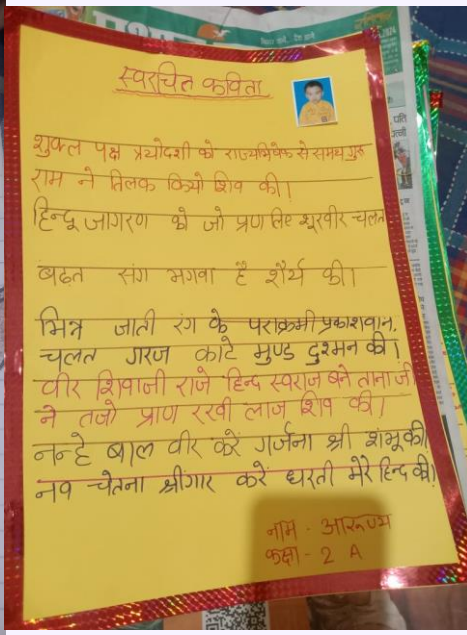 स्वरचित कविता
शुक्ल पक्ष त्रयोदशी को राज्यभिषेक से समय गुरु
राम ने तिलक कियो शिव की।
हिन्दू जागरण को जो प्रण लिए शूरवीर चलत
बढत संग भगवा है शौर्य की।
भिन्न जाती रंग के पराक्रमी प्रकाशवान,
चलत गरज काटे मुण्ड दुश्मन की।
वीर शिवाजी राजे हिन्द स्वराज बने ताना जी
ने तजो प्राण रखी लाज शिव की।
नन्हे बाल वीर करें गर्जना श्री शंभू की
नव चेतना श्रींगार करें धरती मेरे हिन्द की।
नाम - आरूण्य
कक्षा - 2 A
पति
पत्नी